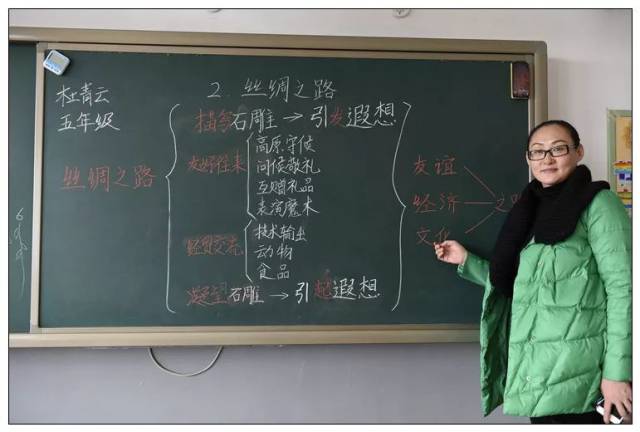 杜青云
五年级
2. 丝绸之路
丝绸之路
描写石雕 → 引发遐想
友好往来
高原守候
问候敬礼
互赠礼品
表演魔术
经贸交流
技术输出
动物
食品
凝望石雕 → 引起遐想
友谊
经济
文化
之路